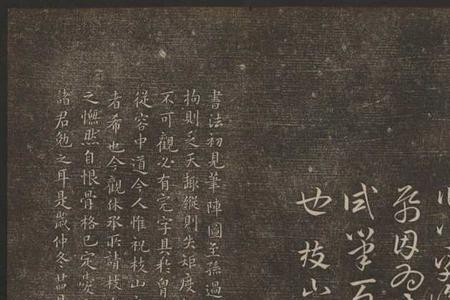 因為
試筆
也枝山
書法初見筆陣圖至孫過
拘則乏天趣縱則失矩度
不可觀必有完字具於胷
從容中道今人惟祝枝山
者希也今觀休承所請枝
之憮然自恨骨格已定
諸君勉之耳是歲仲冬